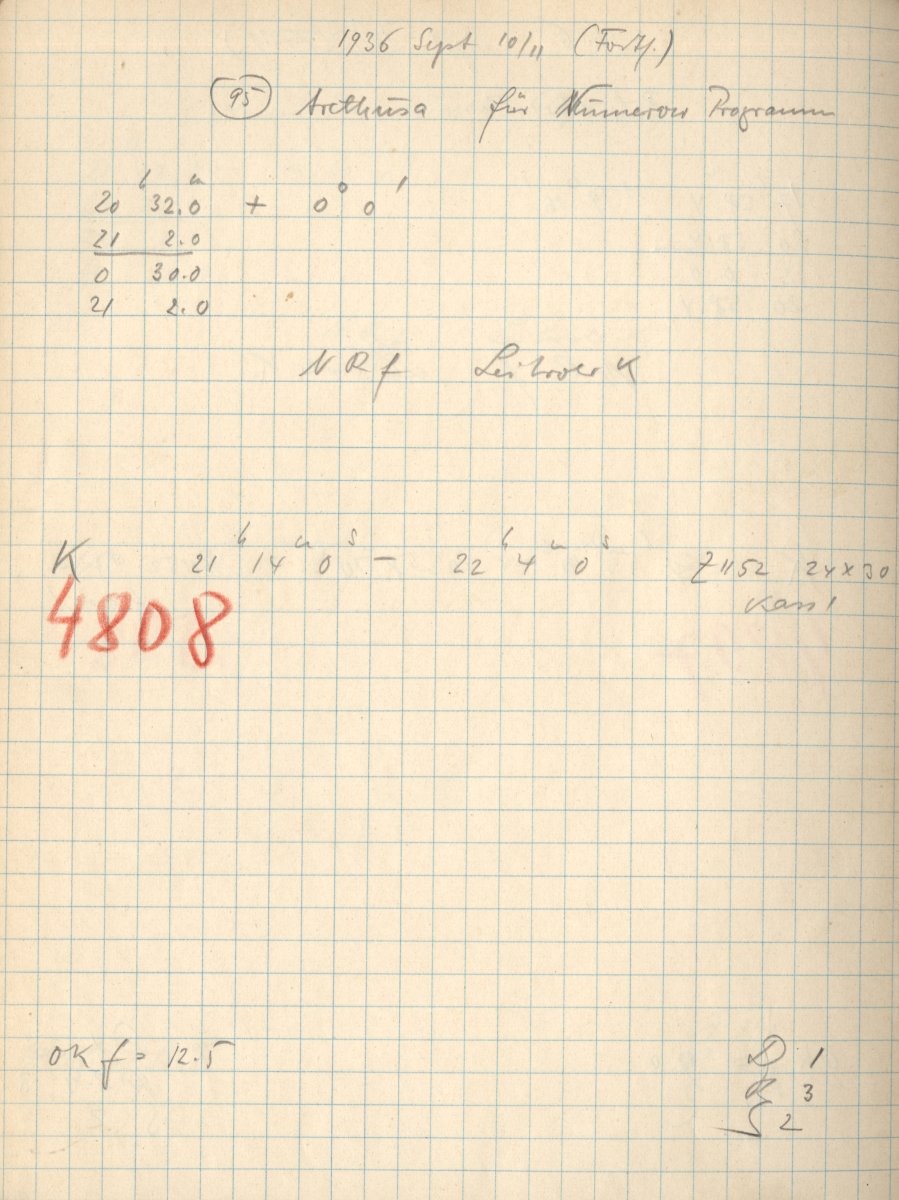 1936 Sept 10/11 (Forts.)
(95) Arethusa für Numerow Programm
20 h 32.0 m + 0° 0'
21 2.0
0 30.0
21 2.0
N R f Leitrohr K
K 21 h 14 m 0 s – 22 h 4 m 0 s Z 1152 24x30
Kass 1
4808
OK f = 12.5
D 1
R 3
S 2